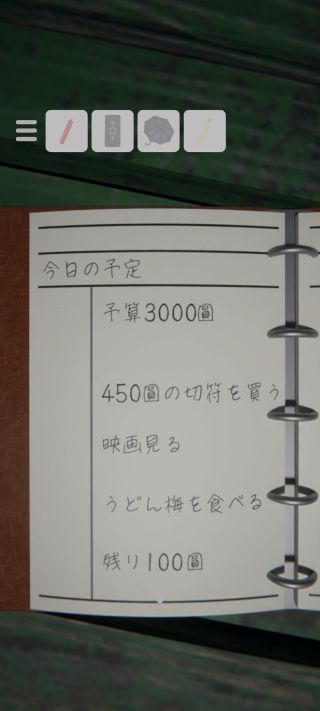 今日の予定
予算3000圓
450圓の切符を買う
映画見る
うどん梅を食べる
残り100圓